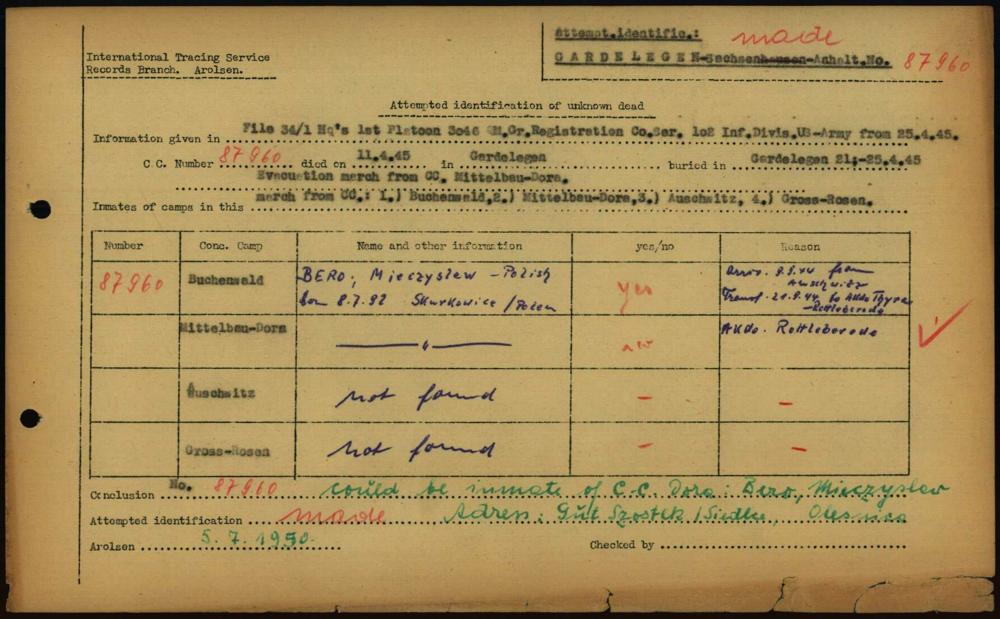 Attempt.identific.: made
GARDELEGEN-Sachsenhausen-Anhalt.No. 87960
International Tracing Service
Records Branch. Arolsen.
Attempted identification of unknown dead
Information given in File 34/1 Hq's 1st Platoon 3046 QM.Gr.Registration Co.Ser. 1o2 Inf.Divis.US-Army from 25.4.45.
C.C. Number 87960 died on 11.4.45 in Gardelegen buried in Gardelegen 21.-25.4.45
Evacuation march from CC. Mittelbau-Dora.
Inmates of camps in this march from CC.: 1.) Buchenwald,2.) Mittelbau-Dora,3.) Auschwitz, 4.) Gross-Rosen.
Number Conc. Camp Name and other information yes/no Reason
87960 Buchenwald BERO, Mieczyslaw - Polish yes Arriv. 9.9.44 from Auschwitz
born 8.7.92 Skurkowice /Polen Transf. 21.9.44 to AKdo Thyra
-Rottleberode
Mittelbau-Dora — " — AKdo. Rottleberode
Auschwitz not found - -
Gross-Rosen not found - -
Conclusion No. 87960 could be inmate of C.C. Dora: Bero, Mieczyslaw
Attempted identification made Adress: Gut Szostek /Siedlce, Olesnica
Arolsen 5.7.1950. Checked by